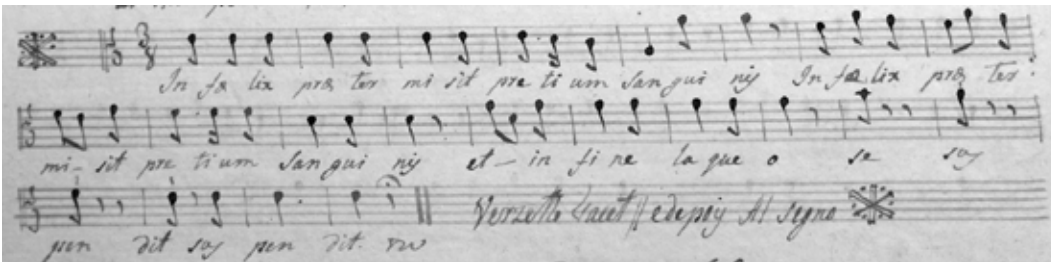 In fæ lix præ ter mi sit pre ti um San gui nis In fæ lix præ ter.
mi- sit pre ti um San gui nis et - in fi ne la que o se sus
pen dit sus pen dit.
Verzette tacet || e depoiz Al Segno